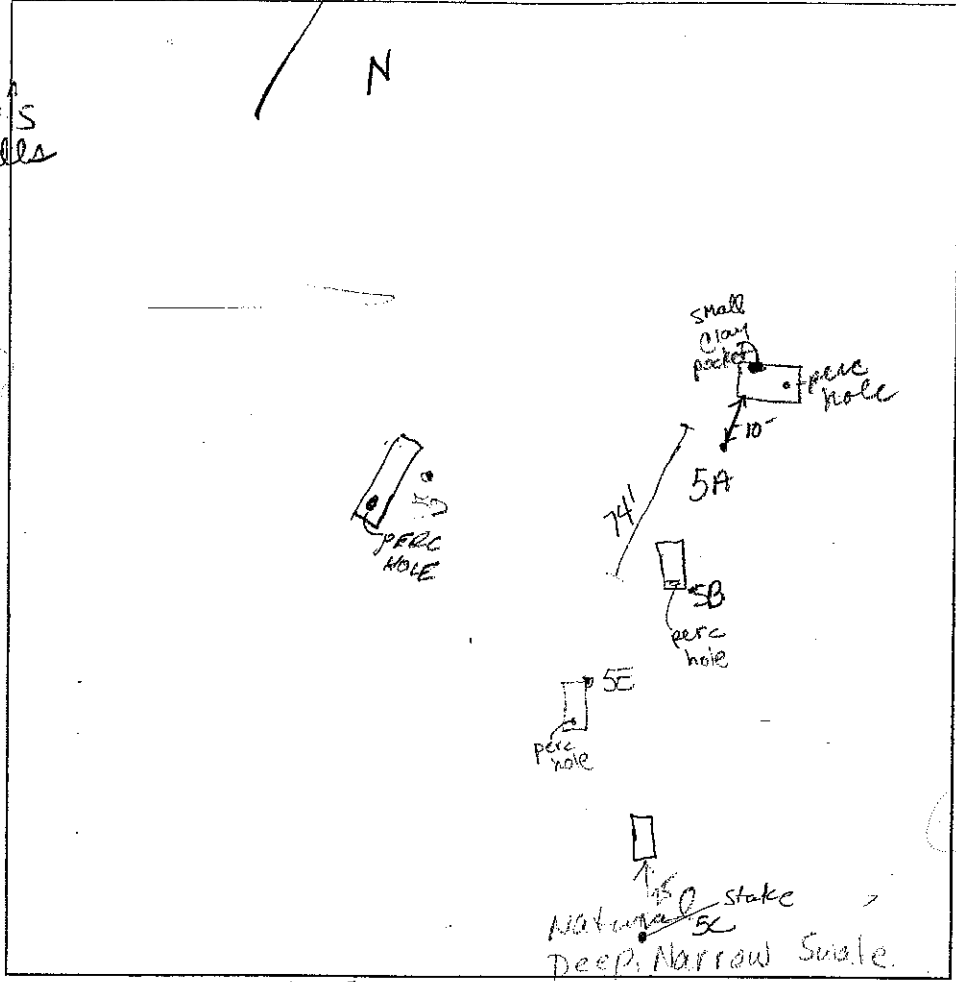 N
S
small
clay
pocket
perc
hole
10'
5A
74'
PERC
HOLE
5B
perc
hole
5E
perc
hole
Natural
stake
5C
Deep, Narrow Swale.